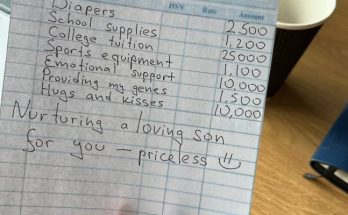 HSN Rate Amount
Diapers 2,500
School supplies 1,200
College tuition 25000
Sports equipment 1,100
Emotional support 10,000
Providing my genes 1,500
Hugs and kisses 10,000
Nurturing a loving son
for you — priceless =)